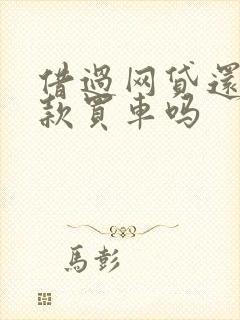 借過网贷還
款買車吗
馬彭